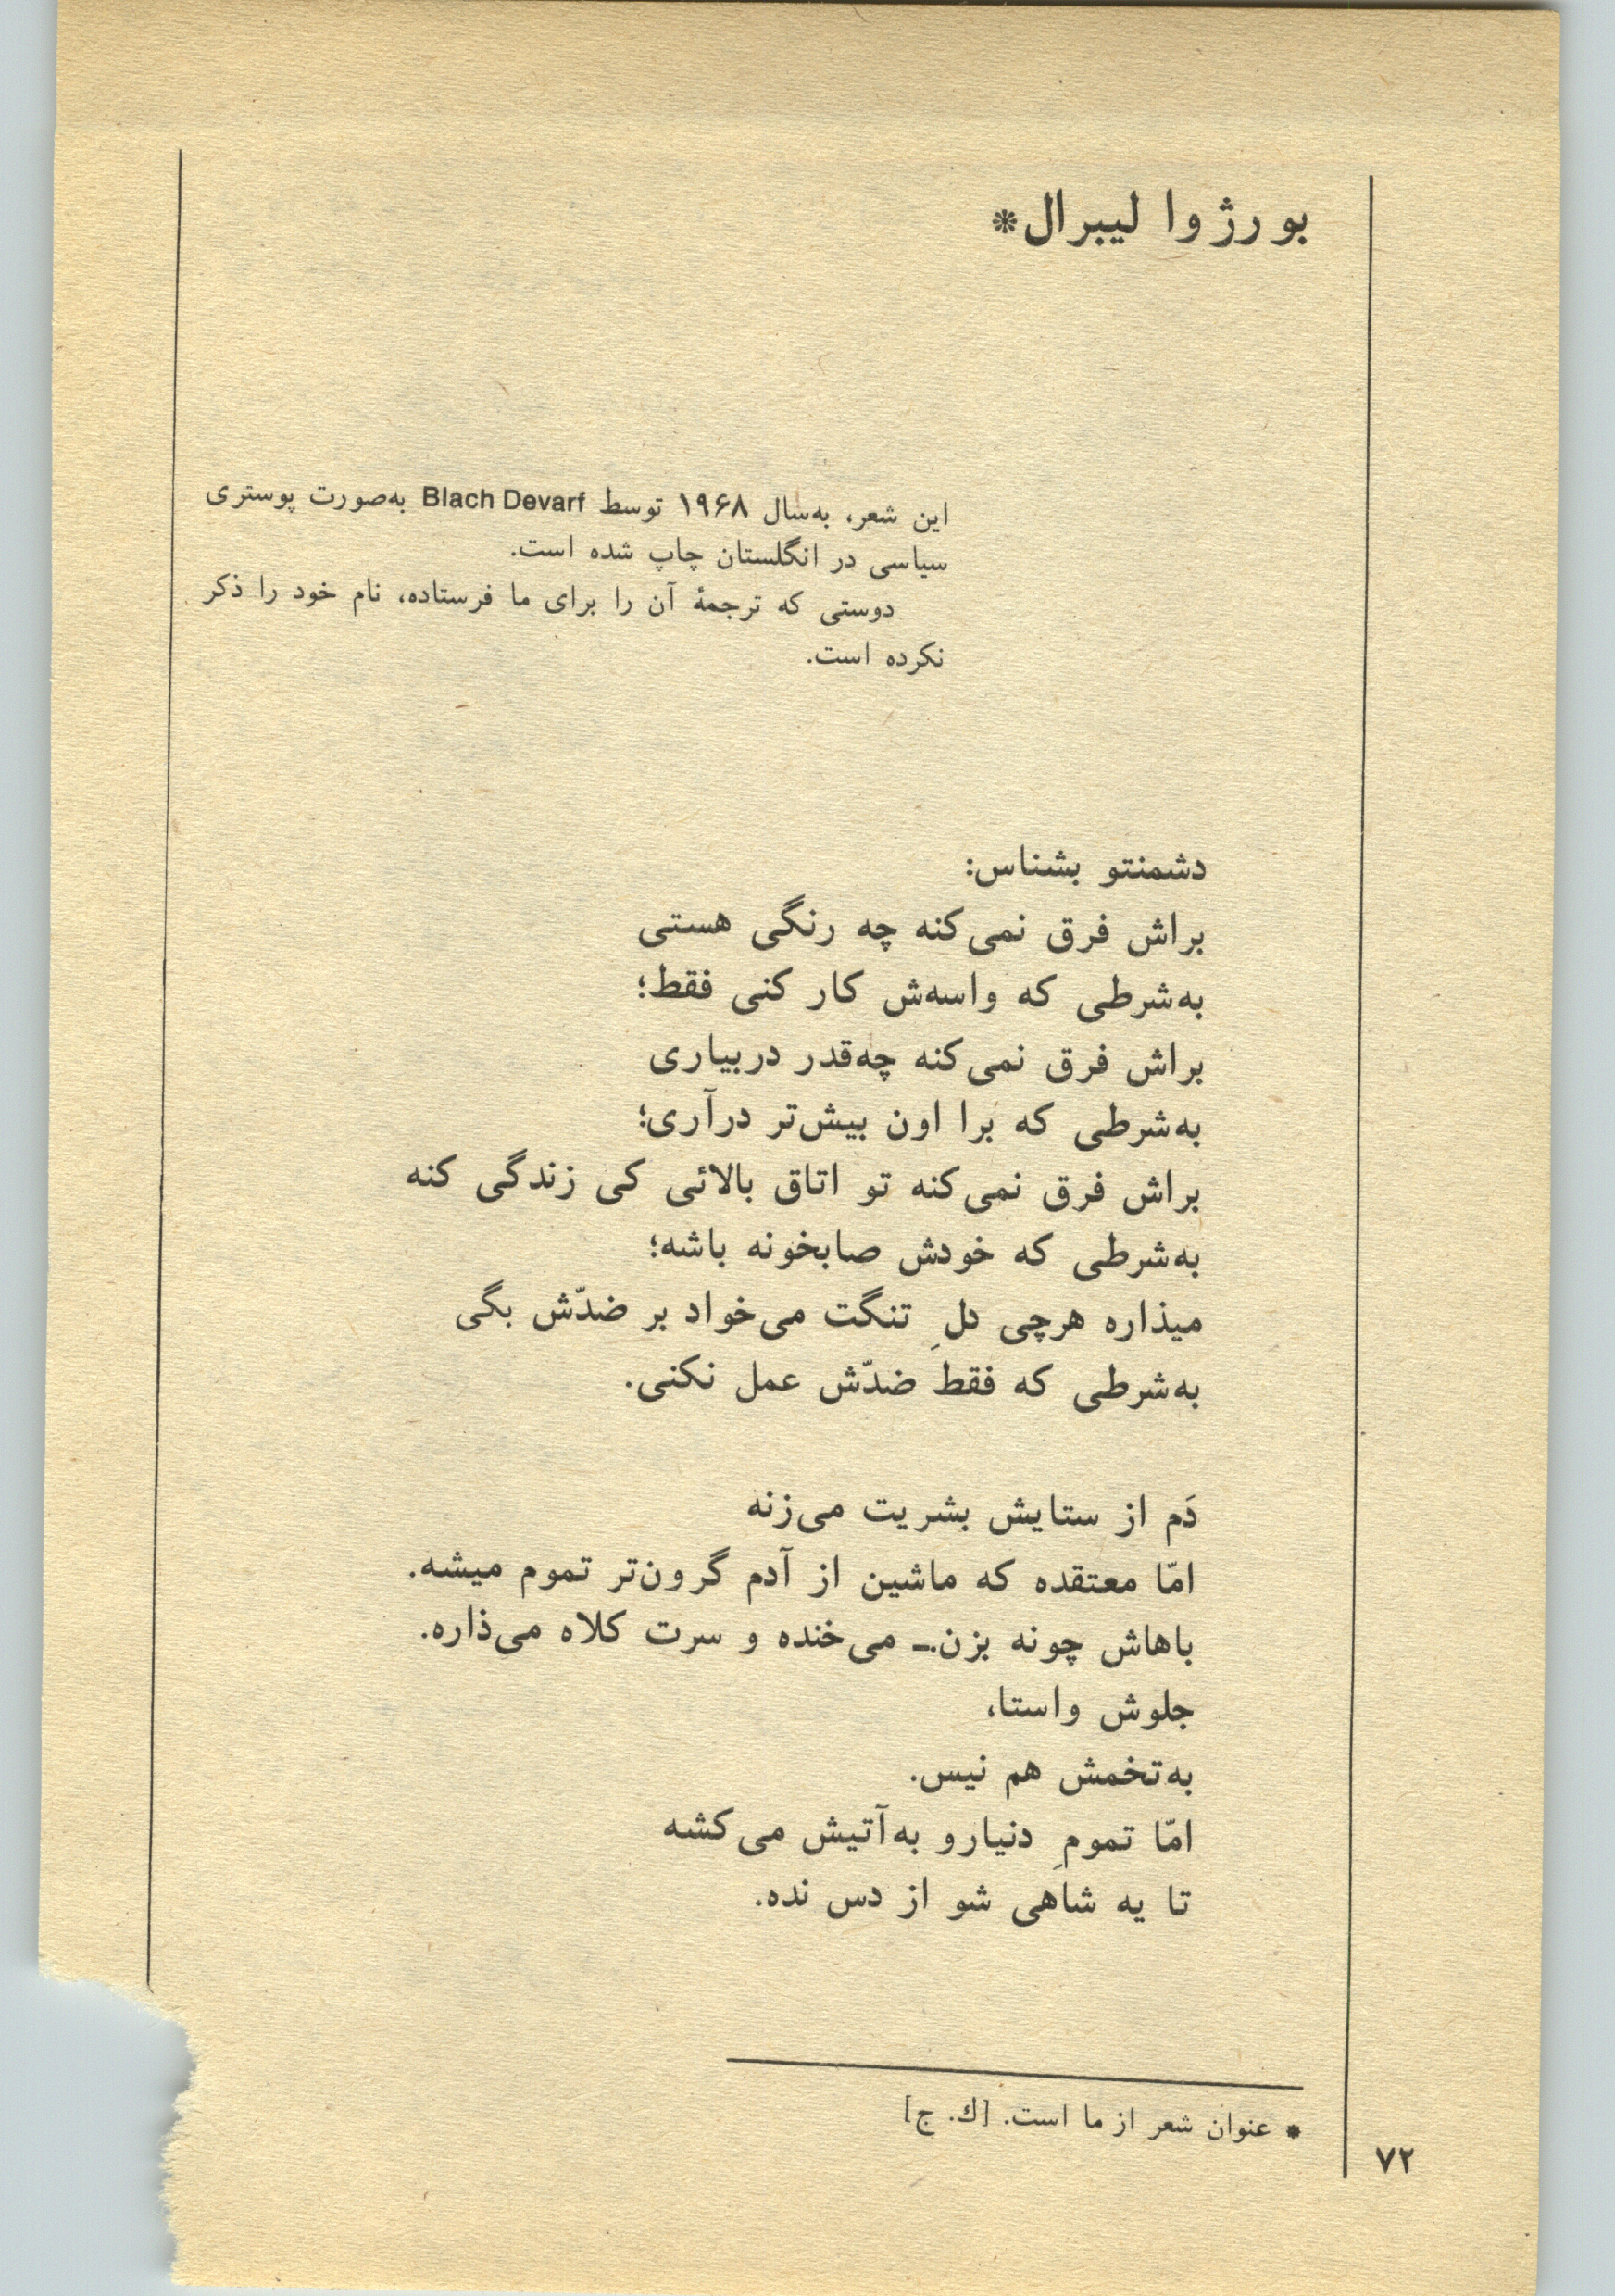 بورژوا لیبرال*
این شعر، به‌سال ۱۹۶۸ توسط Blach Devarf به‌صورت پوستری
سیاسی در انگلستان چاپ شده است.
دوستی که ترجمهٔ آن را برای ما فرستاده، نام خود را ذکر
نکرده است.
دشمنتو بشناس:
براش فرق نمی‌کنه چه رنگی هستی
به‌شرطی که واسه‌ش کار کنی فقط؛
براش فرق نمی‌کنه چه‌قدر دربیاری
به‌شرطی که برا اون بیش‌تر درآری؛
براش فرق نمی‌کنه تو اتاق بالائی کی زندگی کنه
به‌شرطی که خودش صابخونه باشه؛
میذاره هرچی دلِ تنگت می‌خواد بر ضدّش بگی
به‌شرطی که فقط ضدّش عمل نکنی.
دَم از ستایش بشریت می‌زنه
امّا معتقده که ماشین از آدم گرون‌تر تموم میشه.
باهاش چونه بزن.ـ می‌خنده و سرت کلاه می‌ذاره.
جلوش واستا،
به‌تخمش هم نیس.
امّا تمومِ دنیارو به‌آتیش می‌کشه
تا یه شاهی شو از دس نده.
* عنوان شعر از ما است. [ك. ج]
۷۲